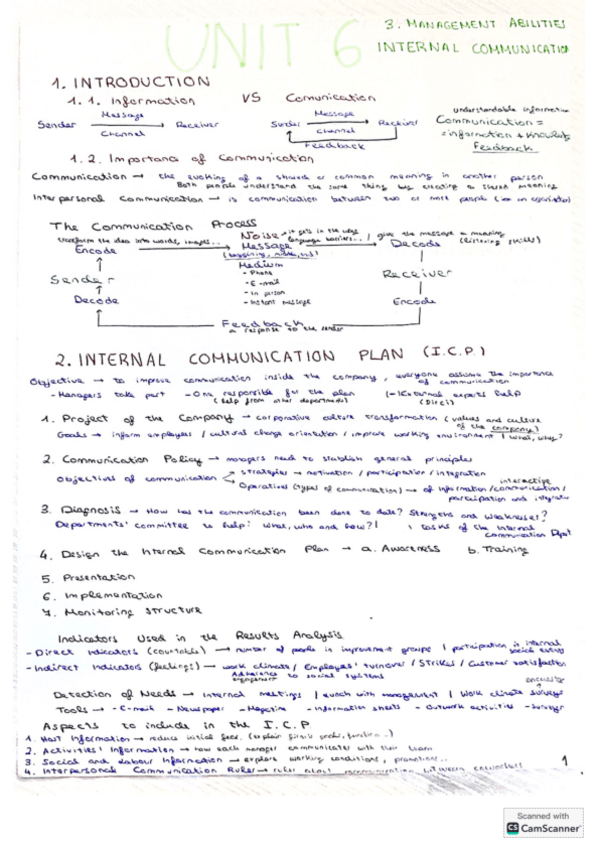 3. MANAGEMENT ABILITIES
UNIT 6
INTERNAL COMMUNICATION
1. INTRODUCTION
1.1. Information VS Comunication
Sender Message Receiver
Channel
Sender Message Receiver
Channel
Feedback
understandable information
Communication =
= information + Knowledge
Feedback
1.2. Importance of Communication
Communication → the evoking of a shared or common meaning in another person
Both people understand the same thing by creating a shared meaning
Interpersonal Communication → is communication between two or more people
The Communication Process
transform the idea into words, images...
Noise → it gets in the way
language barriers...
give the message a meaning
(listening skills)
Encode Message Decode
Medium
- Phone
- E-mail
- In person
- Instant message
Sender Receiver
Decode Encode
Feedback
a response to the sender
2. INTERNAL COMMUNICATION PLAN (I.C.P.)
Objective → to improve communication inside the company, everyone assume the importance
of communication
- Managers take part - One responsible for the plan (- External experts help
(help from other departments) (Dircii)
1. Project of the Company → corporative culture transformation (values and culture
of the company)
Goals → inform employees / cultural change orientation / improve working environment / what, why?
2. Communication Policy → managers need to stablish general principles
Objectives of communication → strategies → motivation / participation / integration
Operatives (types of communication) → of information / communication /
interactive
participation and
3. Diagnosis → How has the communication been done to date? Strengths and weaknesses?
Departments' committee to help: what, who and how? | tasks of the Internal
communication Dpt
4. Design the Internal Communication Plan → a. Awareness b. Training
5. Presentation
6. Implementation
7. Monitoring structure
Indicators Used in the Results Analysis
- Direct Indicators (countable) → number of people in improvement groups / participation in internal
social events
- Indirect Indicators (feelings) → work climate / Employees' turnover / Strikes / Customer satisfaction
Adherence to social systems
Detection of Needs → Internal meetings / Lunch with management / Work climate surveys
Tools → - E-mail - Newspaper - Magazine - Information sheets - Outwork activities - Surveys
Aspects to include in the I.C.P
1. Host Information → reduce initial fear
2. Activities' Information → how each manager communicates with their team
3. Social and Labour Information → explore working conditions, promotions..
4. Interpersonal Communication Rules → rules about communication between coworkers
1
Scanned with
CS CamScanner